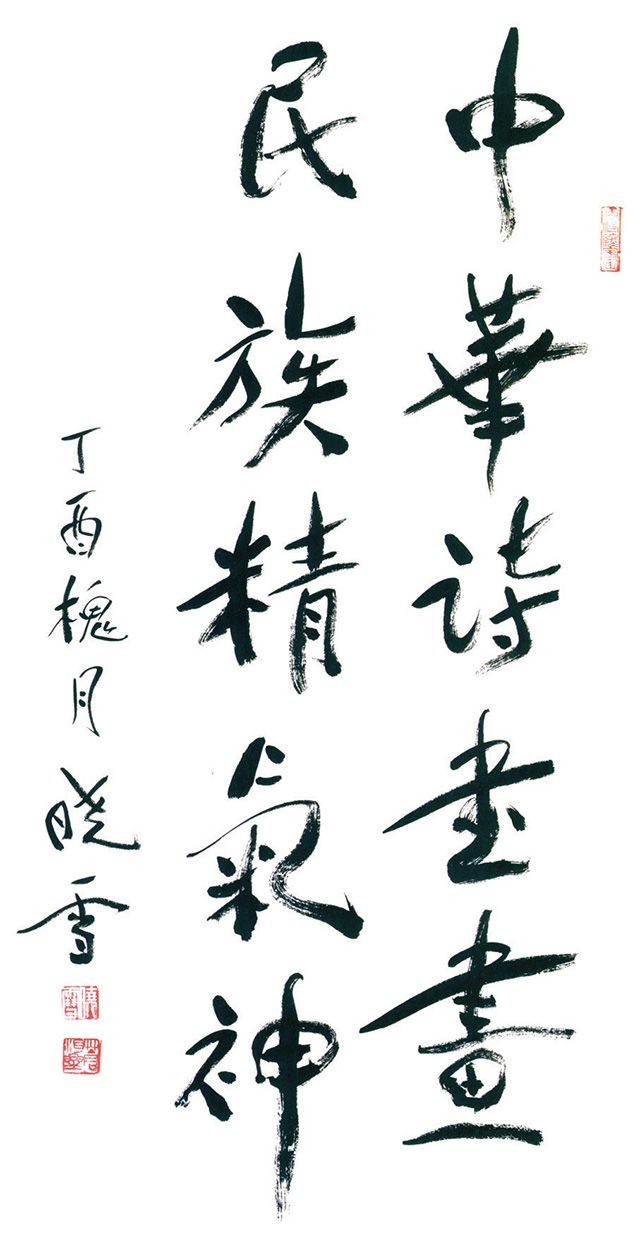 中華詩书畫
民族精氣神
丁酉槐月晓雪